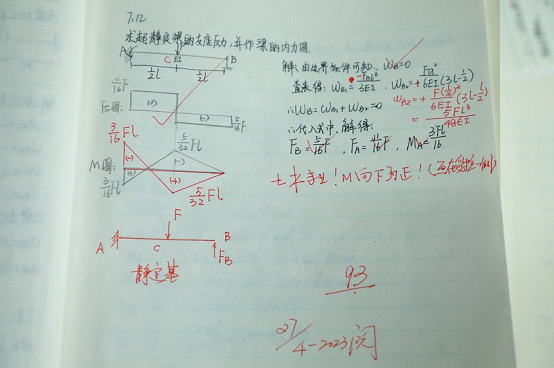 7.12
求超静定梁的支座反力,并作梁的内力图.
A C EI B
½l ½l
11/16 F
Fs图: (+)
(-) 5/16 F
3/16 Fl 5/32 Fl
M图: (-)
(+) (+)
3/16 Fl 5/32 Fl
F
A C B
F_B
静定基
解: 由边界条件可知: W_B=0
查表得: W_B1 = -F_B l³/3EI , W_B2 = Fa²/6EI (3l-½)
W_B2 = + F(½)²/6EI (3l-½)
= 5Fl³/48EI
∴W_B = W_B1 + W_B2 = 0
∴代入式中, 解得:
F_B = 5/16 F, F_A = 11/16 F, M_A = 3Fl/16
土木专业! M向下为正!
93
27/4-2023阅